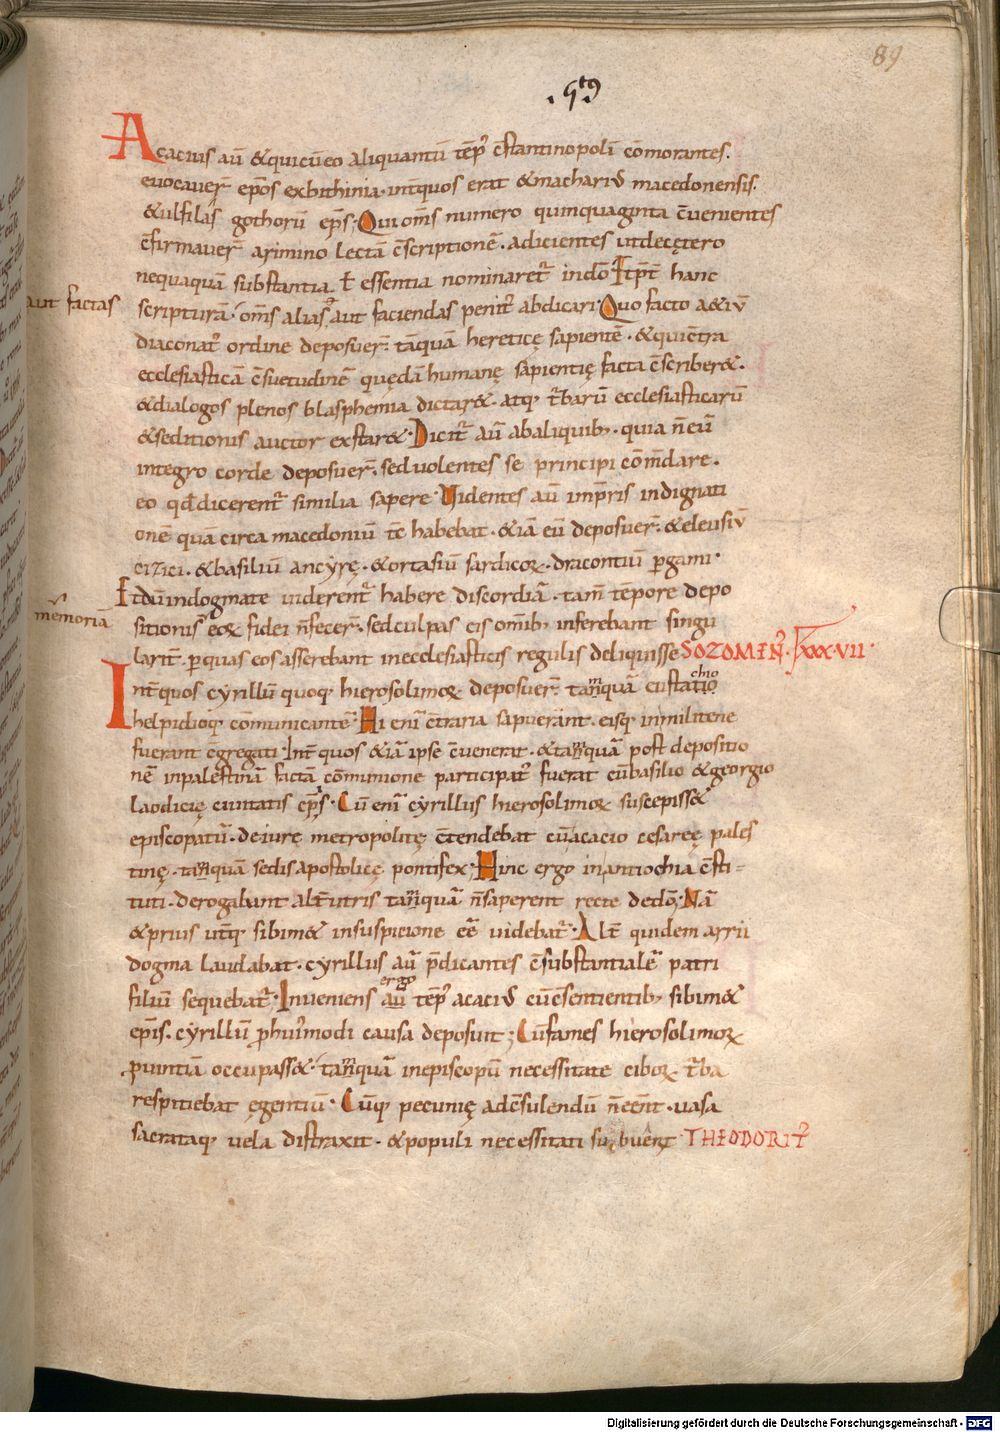 89
.5t9.
Acacius aū &quicūeo aliquantū tēp̄ c̄stantinopolī cōmorantes.
euocauer̄ ep̄os exbithinia. int̄quos erat &machariꝰ macedonensis.
&ulfilas gothorū ep̄s; Qui om̄s numero quinquaginta c̄uenientes
c̄firmauer̄ arimino lectā c̄scriptionē. adicientes utdecętero
nequaquā substantia ł essentia nominaret̄ indō. It̄p̄t̄ hanc
aut factas
scripturā. om̄s alias aut faciendas penit̄ abdicari. Quo facto a&iū
diaconat̄ ordine deposuer̄. tāquā hereticę sapientē. &quic̄tra
ecclesiasticā c̄suetudinē quędā humanę sapientię facta c̄scriber&.
&dialogos plenos blasphemia dictar&. atq; t̄barū ecclesiasticarū
&seditionis auctor exstar&. Dicit̄ aū abaliquib; quia n̄cū
integro corde deposuer̄. seduolentes se principi cōm̄dare.
eo qd̄dicerent̄ similia sapere. Videntes aū imp̄ris indignati
onē quā circa macedoniū t̄c habebat. &iā eū deposuer̄. &eleusiū
cizici. &basiliū ancyrę. &ortasiū sardicoꝝ. dracontiū ꝑgami.
Etdū indogmate uiderent̄ habere discordiā. tam̄ tēpore depo
mēmoriā
sitionis eoꝝ fidei n̄fecer̄. sedculpas eis om̄ib; inferebant singu
larit̄. ꝑquas eos asserebant inecclesiasticis regulis deliquisse SOZOMEN̄. XXXVII.
Int̄quos cyrillū quoq; hierosolimoꝝ deposuer̄. tanquā eustatio
chio
helpidioq; cōmunicantē. Hi enī c̄traria sapuerant. eisq; inmilitene
fuerant c̄gregati. Int̄ quos &iā ipse c̄uenerat. &tanquā post depositio
nē inpalestinā factā cōmunione participat̄ fuerat cūbasilio &georgio
laodicię ciuitatis ep̄s. Cū enī cyrillus hierosolimoꝝ suscepiss&
episcopatū. deiure metropolitę c̄tendebat cū acacio cesareę pales
tinę. tanquā sedis apostolicę pontifex; Hinc ergo inantiochia c̄sti=
tuti. derogabant alt̄utris tanquā n̄saperent recte dedō; Nā
&prius ut̄q; sibim& insuspicione eē uidebat̄. Alt̄ quidem arrii
dogma laudabat. cyrillus aū p̄dicantes c̄substantialē patri
filiū sequebat̄. Inueniens aū tēp̄ acaciꝰ cūc̄sentientib; sibim&
ergo
ep̄is. cyrillū ꝑhuiꝰmodi causa deposuit; Cūfames hierosolimoꝝ
ꝓuintiā occupass&. tanquā inepiscopū necessitate ciboꝝ t̄ba
respitiebat egentiū. Cūq; pecunię adc̄sulendū n̄eēnt. uasa
sacrataq; uela distraxit. &populi necessitati
THEODORIT̄